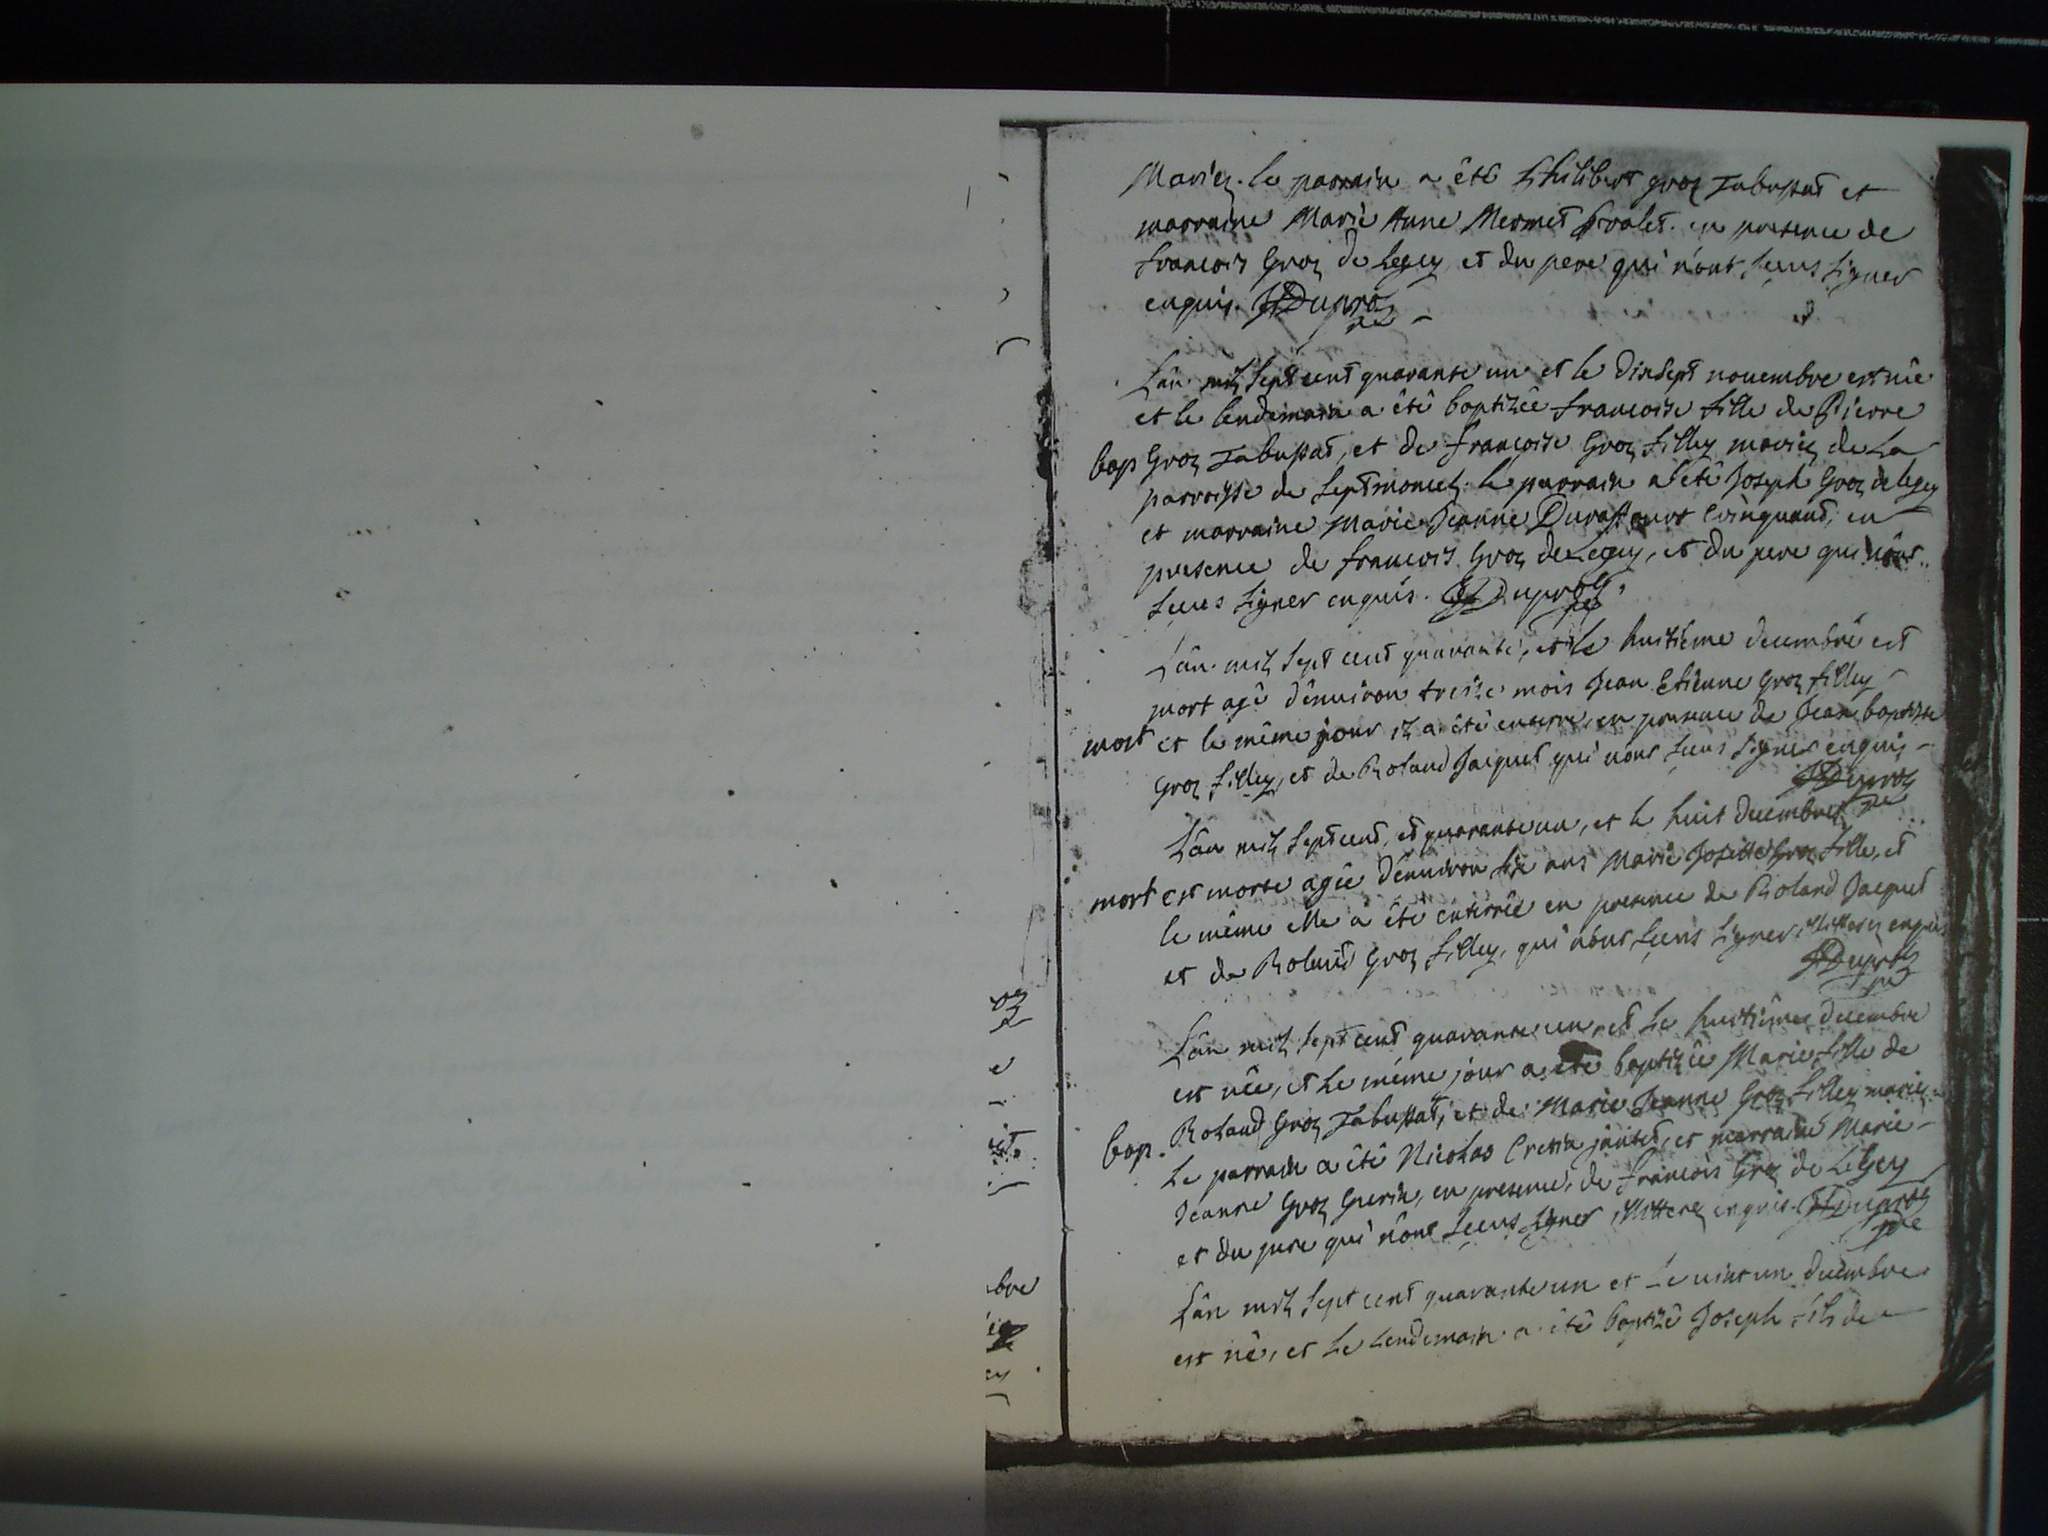 Mariez. le parrain a êté Philibert groz Tabussat et
marraine Marie Anne Mermet en presence de
francois Groz de Legey et du pere qui n'ont sceus signer
enquis. JDuproz
L'ân mil sept cent quarante un et le dixsept nouembre est née
et le lendemain a êtê baptizêe francoise fille de Pierre
bap Groz Tabussat, et de françoise Groz fillez mariez de La
parroisse de septmoncel. le parrain a êtê Joseph Groz de legey
et marraine Marie Jeanne Duraffourt en
presence de francois Groz de Legey, et du pere qui n'ônt
sceus signer enquis. JDuproz
L'ân mil sept cent quarante, et le huitiême decembre est
mort agê d'enuiron treize mois Jean Etienne groz fillez
mort et le même jour il a êtê enterré, en presence de Jean baptiste
groz fillez, et de Roland Jacquet qui n'ont sceus signer enquis
JDuproz
L'ân mil sept cent, et quarante un, et le huit decembre
mort est morte agêe d'enuiron six ans Marie Josette Groz fille, et
le même elle a êtê enterrêe en presence de Roland Jacquet
et de Roland Groz fillez, qui n'ônt sceus signer, illitterez enquis
JDuproz
L'ân mil sept cent quarante un, et le huitiême decembre
est nêe, et le même jour a etê baptizêe Marie fille de
Roland Groz Tabussat, et de Marie Jeanne Groz fillez mariez
bap. Le parrain a êtê Nicolas et marraine Marie
Jeanne Groz Guerin, en presence, de francois Groz de Legey
et du pere qui n'ônt sceus signer, illitterez enquis. JDuproz
L'ân mil sept cent quarante un et le uint un decembre
est nê, et le lendemain a êtê baptizê Joseph fils de
bre